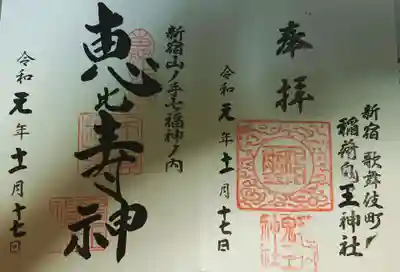 奉拝
新宿 歌舞伎町
稲荷鬼王神社
令和元年十一月十七日
新宿山ノ手七福神ノ内
恵比寿神
令和元年十一月十七日